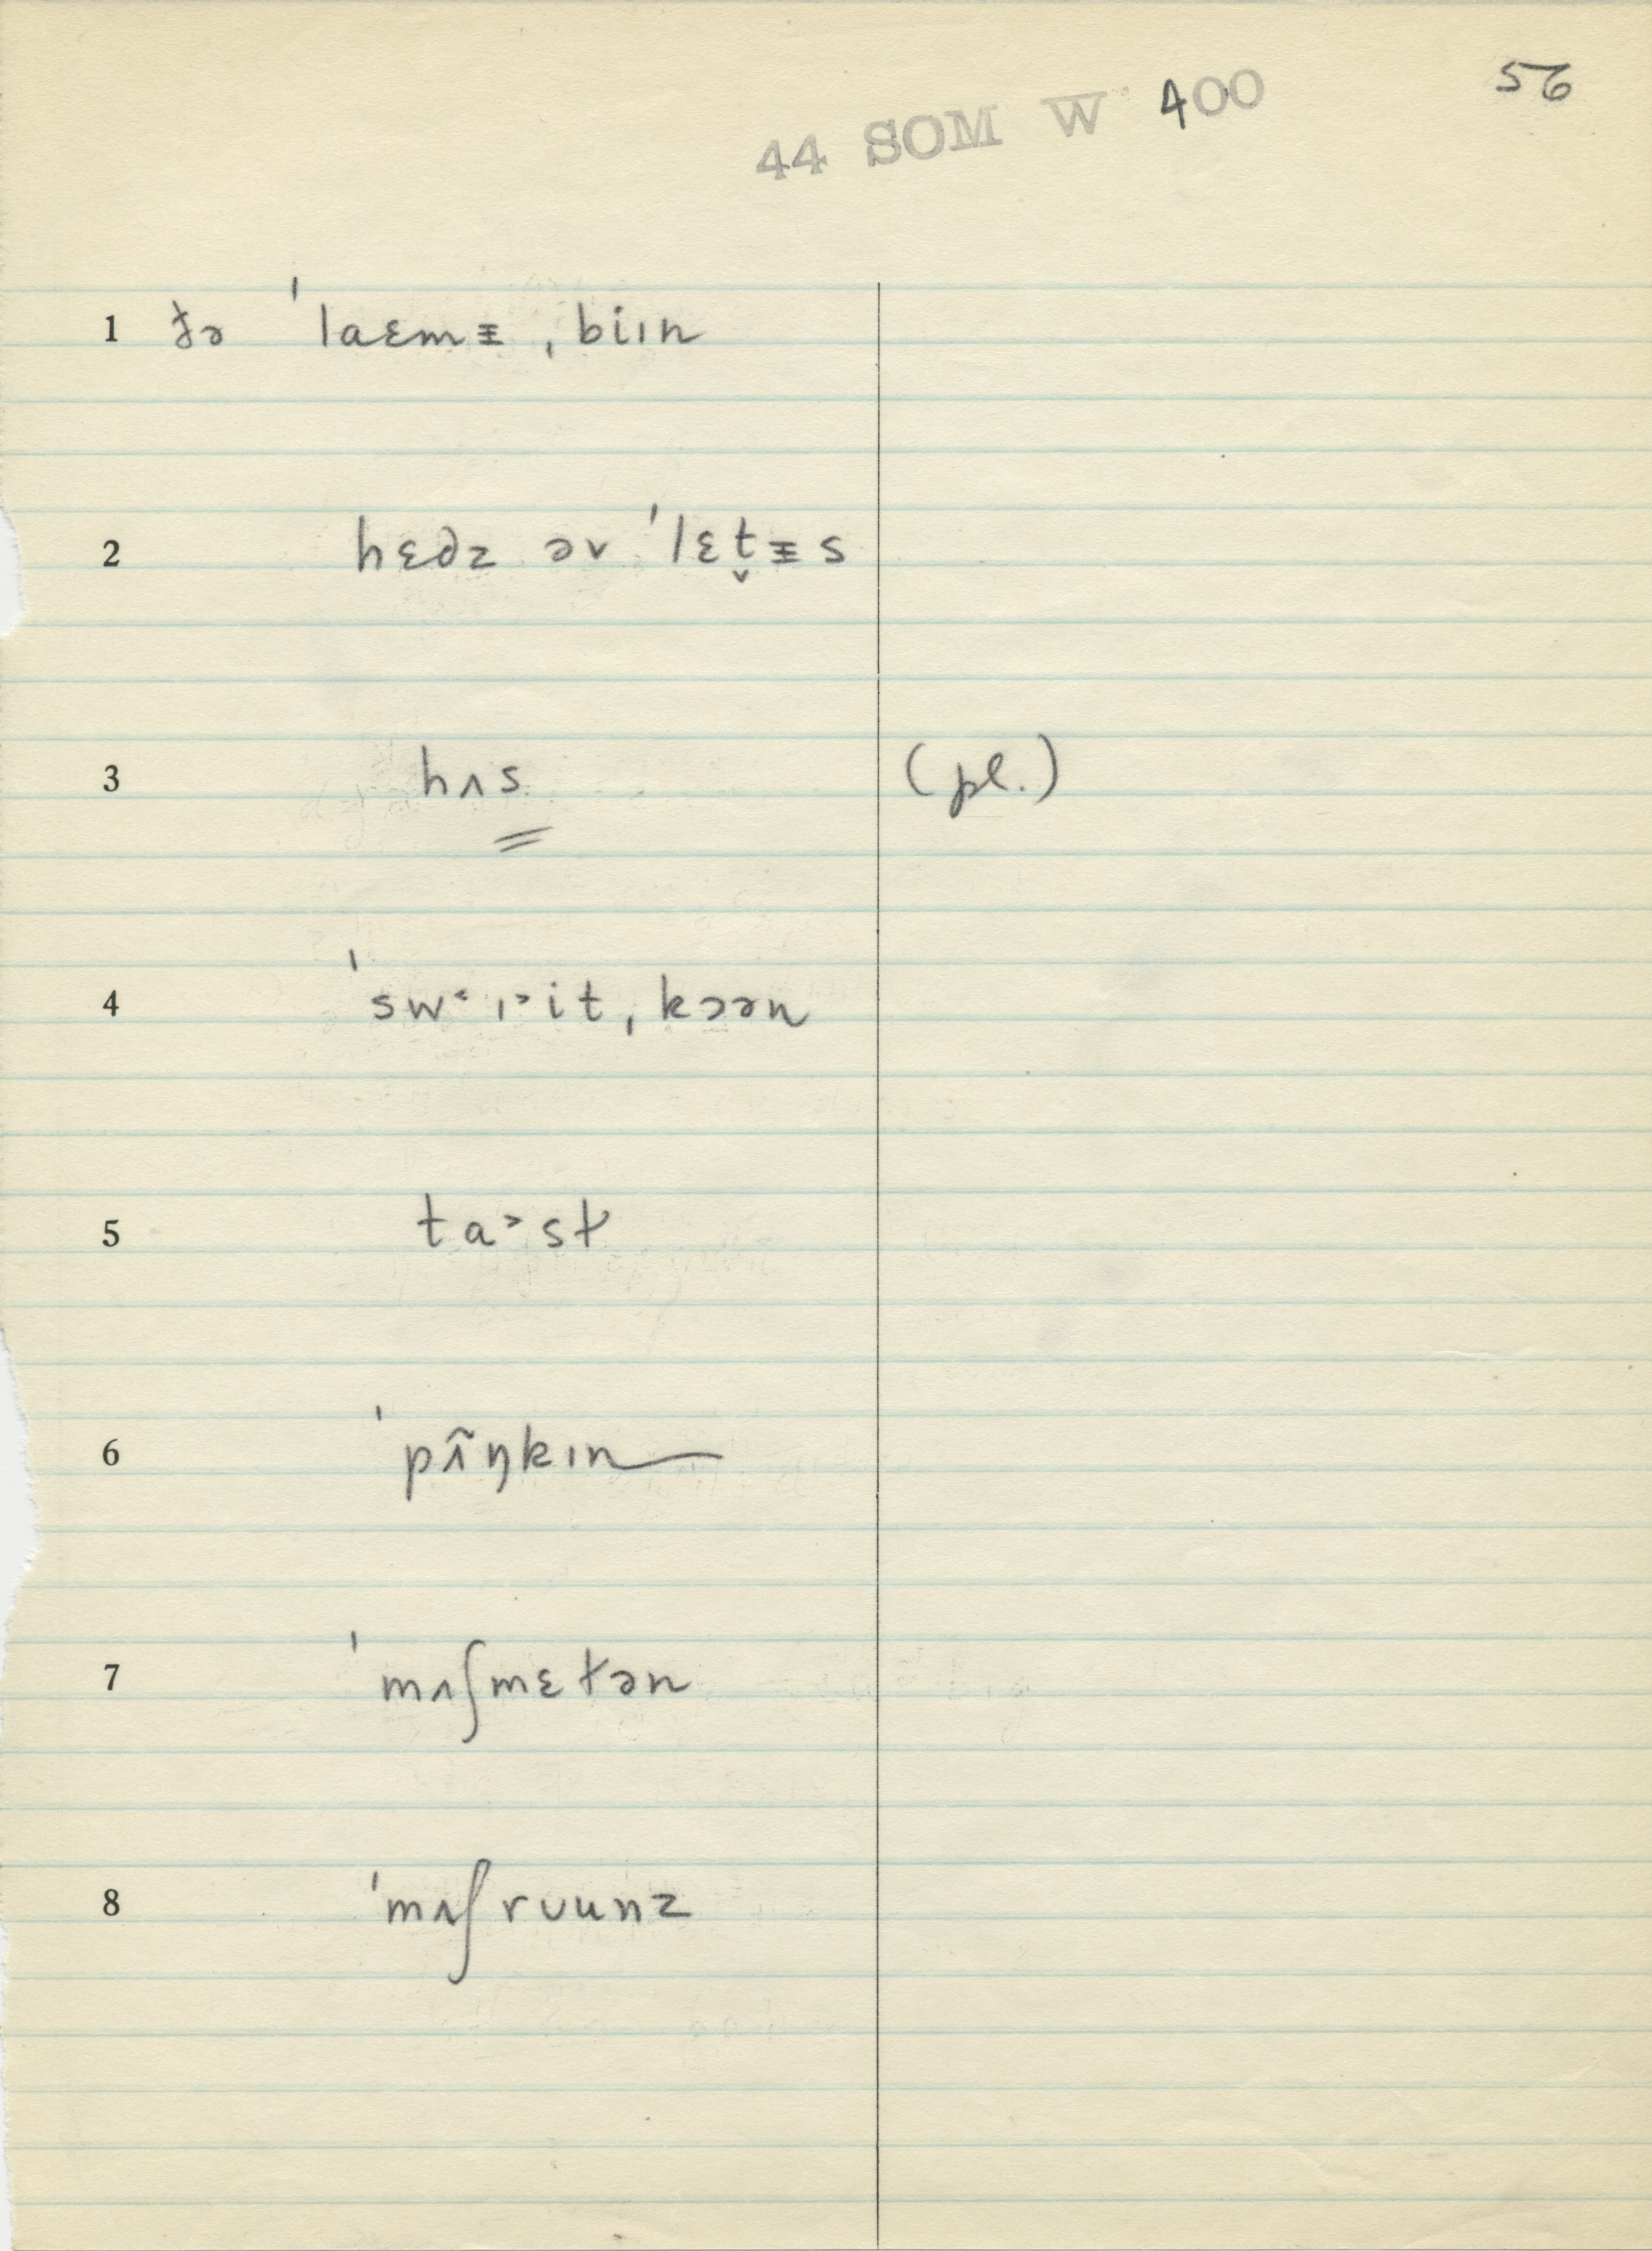 56
44 SOM W 400
1 ðə ˈlaɛmᵻ ˌbiɪn
2 hɛdz əv ˈlɛt̬ᵻs
3 hʌs (pl.)
4 ˈsw˂ɪ˃it ˌkɔən
5 ta˃st
6 ˈpʌ̃ŋkɪn
7 ˈmʌʃmɛtən
8 ˈmʌʃrʊunz